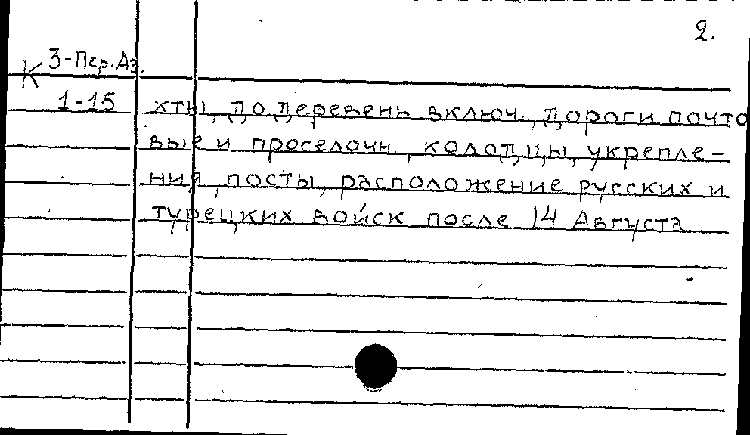 2.
К 3-Пер.Аз.
1-15 хты, до деревень включ., дороги почто
вые и проселочн., колодцы, укрепле-
ния, посты, расположение русских и
турецких войск после 14 Августа